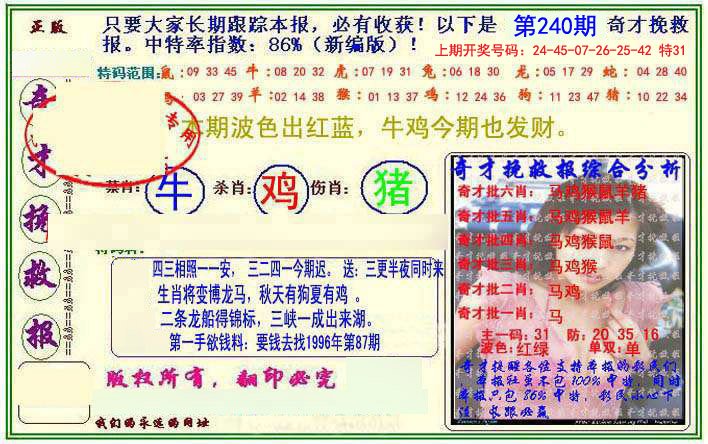 正版
只要大家长期跟踪本报，必有收获！以下是 第240期 奇才挽救
报。中特率指数：86%（新编版）！
上期开奖号码：24-45-07-26-25-42 特31
特码范围：鼠：09 33 45 牛：08 20 32 虎：07 19 31 兔：06 18 30 龙：05 17 29 蛇：04 28 40
03 27 39 羊：02 14 38 猴：01 13 37 鸡：12 24 36 狗：11 23 47 猪：10 22 34
专用
本期波色出红蓝，牛鸡今期也发财。
奇才挽救报
禁肖：牛 杀肖：鸡 伤肖：猪
四三相照一一安，三二四一今期迟。送：三更半夜同时来
生肖将变博龙马，秋天有狗夏有鸡。
二条龙船得锦标，三峡一成出来湖。
第一手欲钱料：要钱去找1996年第87期
版权所有，翻印必究
我们的永远的网址
奇才挽救报综合分析
奇才批六肖：马鸡猴鼠羊猪
奇才批五肖：马鸡猴鼠羊
奇才批四肖：马鸡猴鼠
奇才批三肖：马鸡猴
奇才批二肖：马鸡
奇才批一肖：马
主一码：31 防：20 35 16
波色：红绿 单双：单
奇才提醒各位支持本报的彩民们，
本报不包100%中特，同时
本报只包86%中特，彩民小心下
注